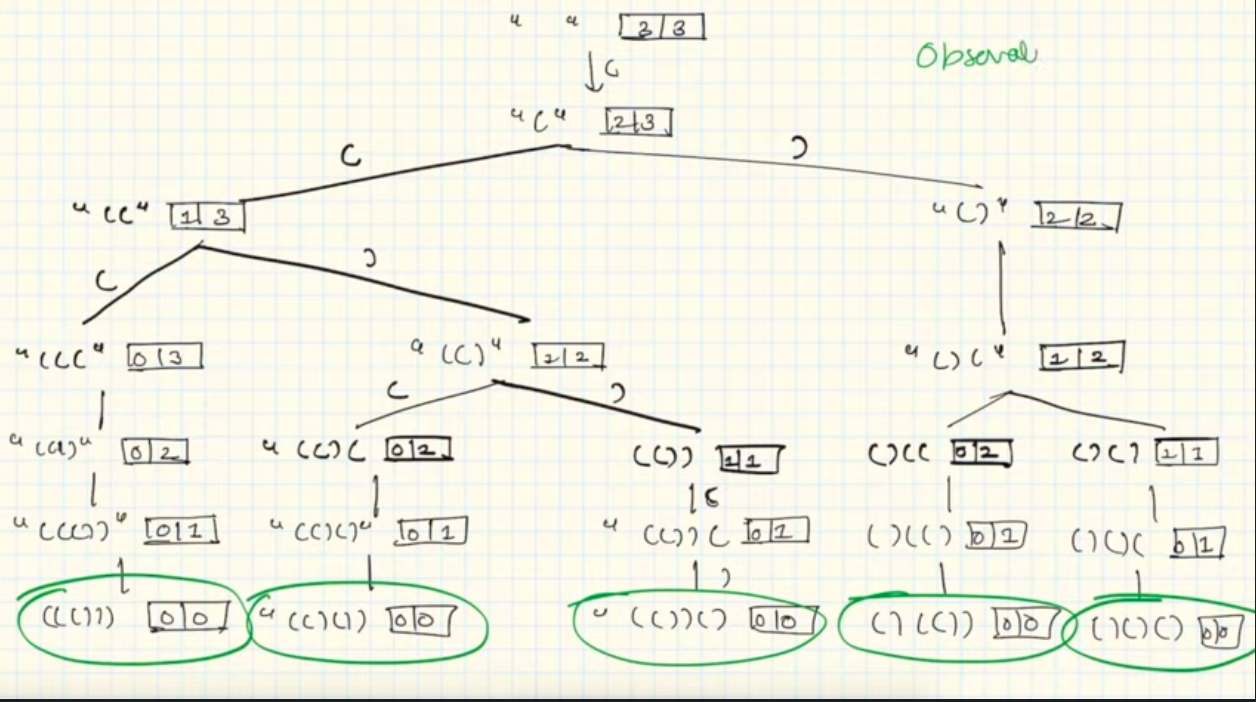 " " 3|3
Obseval
( 
"(" 2|3
( )
"((" 1|3 "()" 2|2
( )
"(((" 0|3 "(()" 1|2 "()(" 1|2
( )
"((()" 0|2 "(()( 0|2 (()) 1|1 ()(( 0|2 ()() 1|1
(
"((())" 0|1 "(()()" 0|1 "(())( 0|1 ()(() 0|1 ()()( 0|1
)
((())) 0|0 "(()()) 0|0 "(())() 0|0 ()(()) 0|0 ()()() 0|0